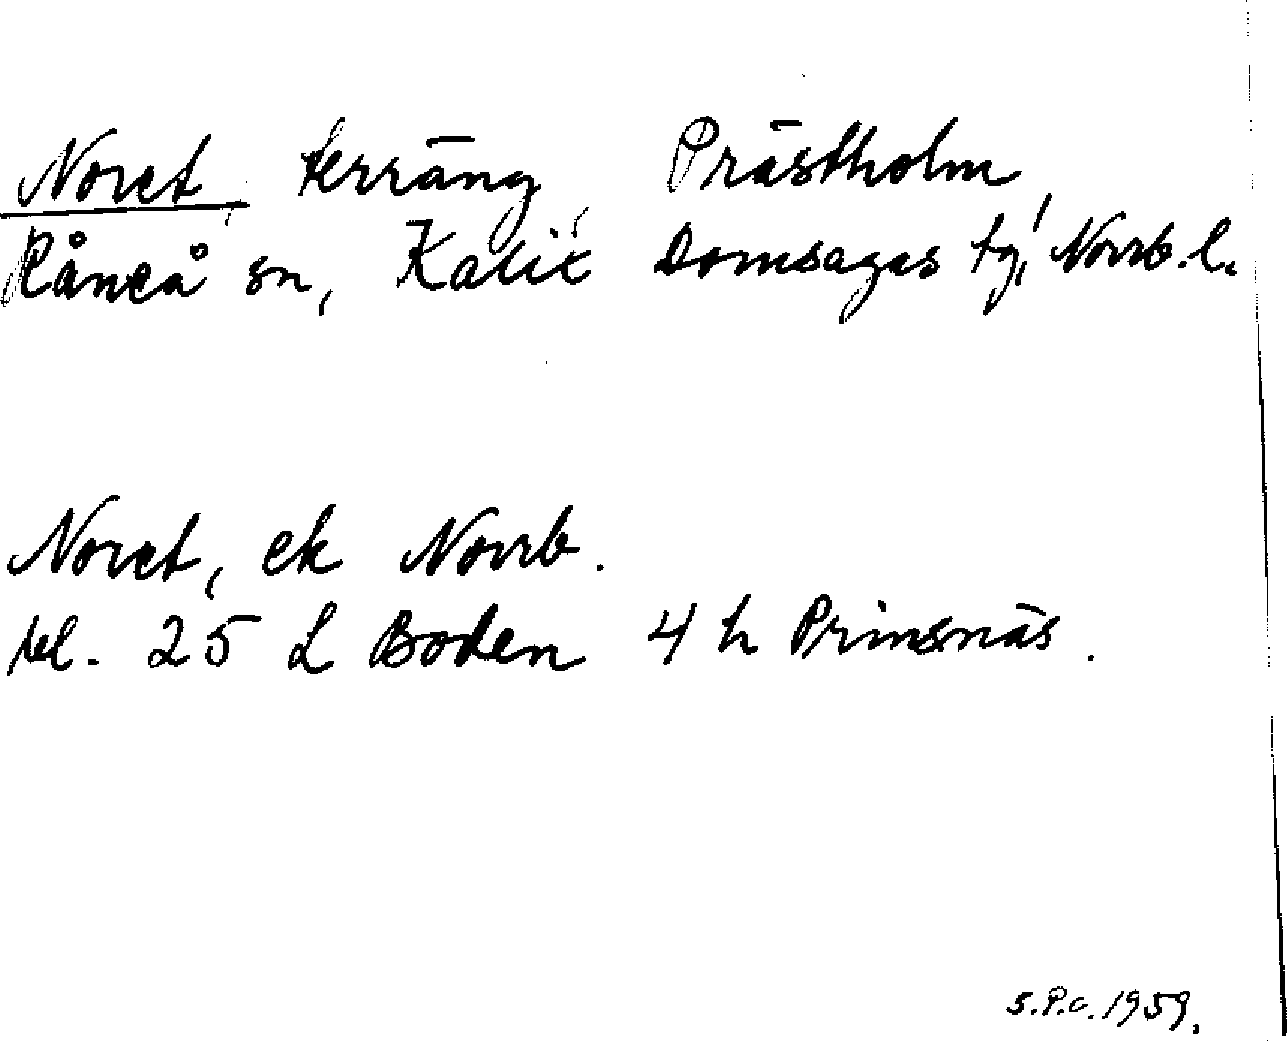 Noret, terräng, Prästholm,
Råneå sn, Kalix Domsagas tg, Norrb. l.
Noret, ek Norrb.
bl. 25 L Boden 4 h Prinsnäs.
S.P.c. 1959.